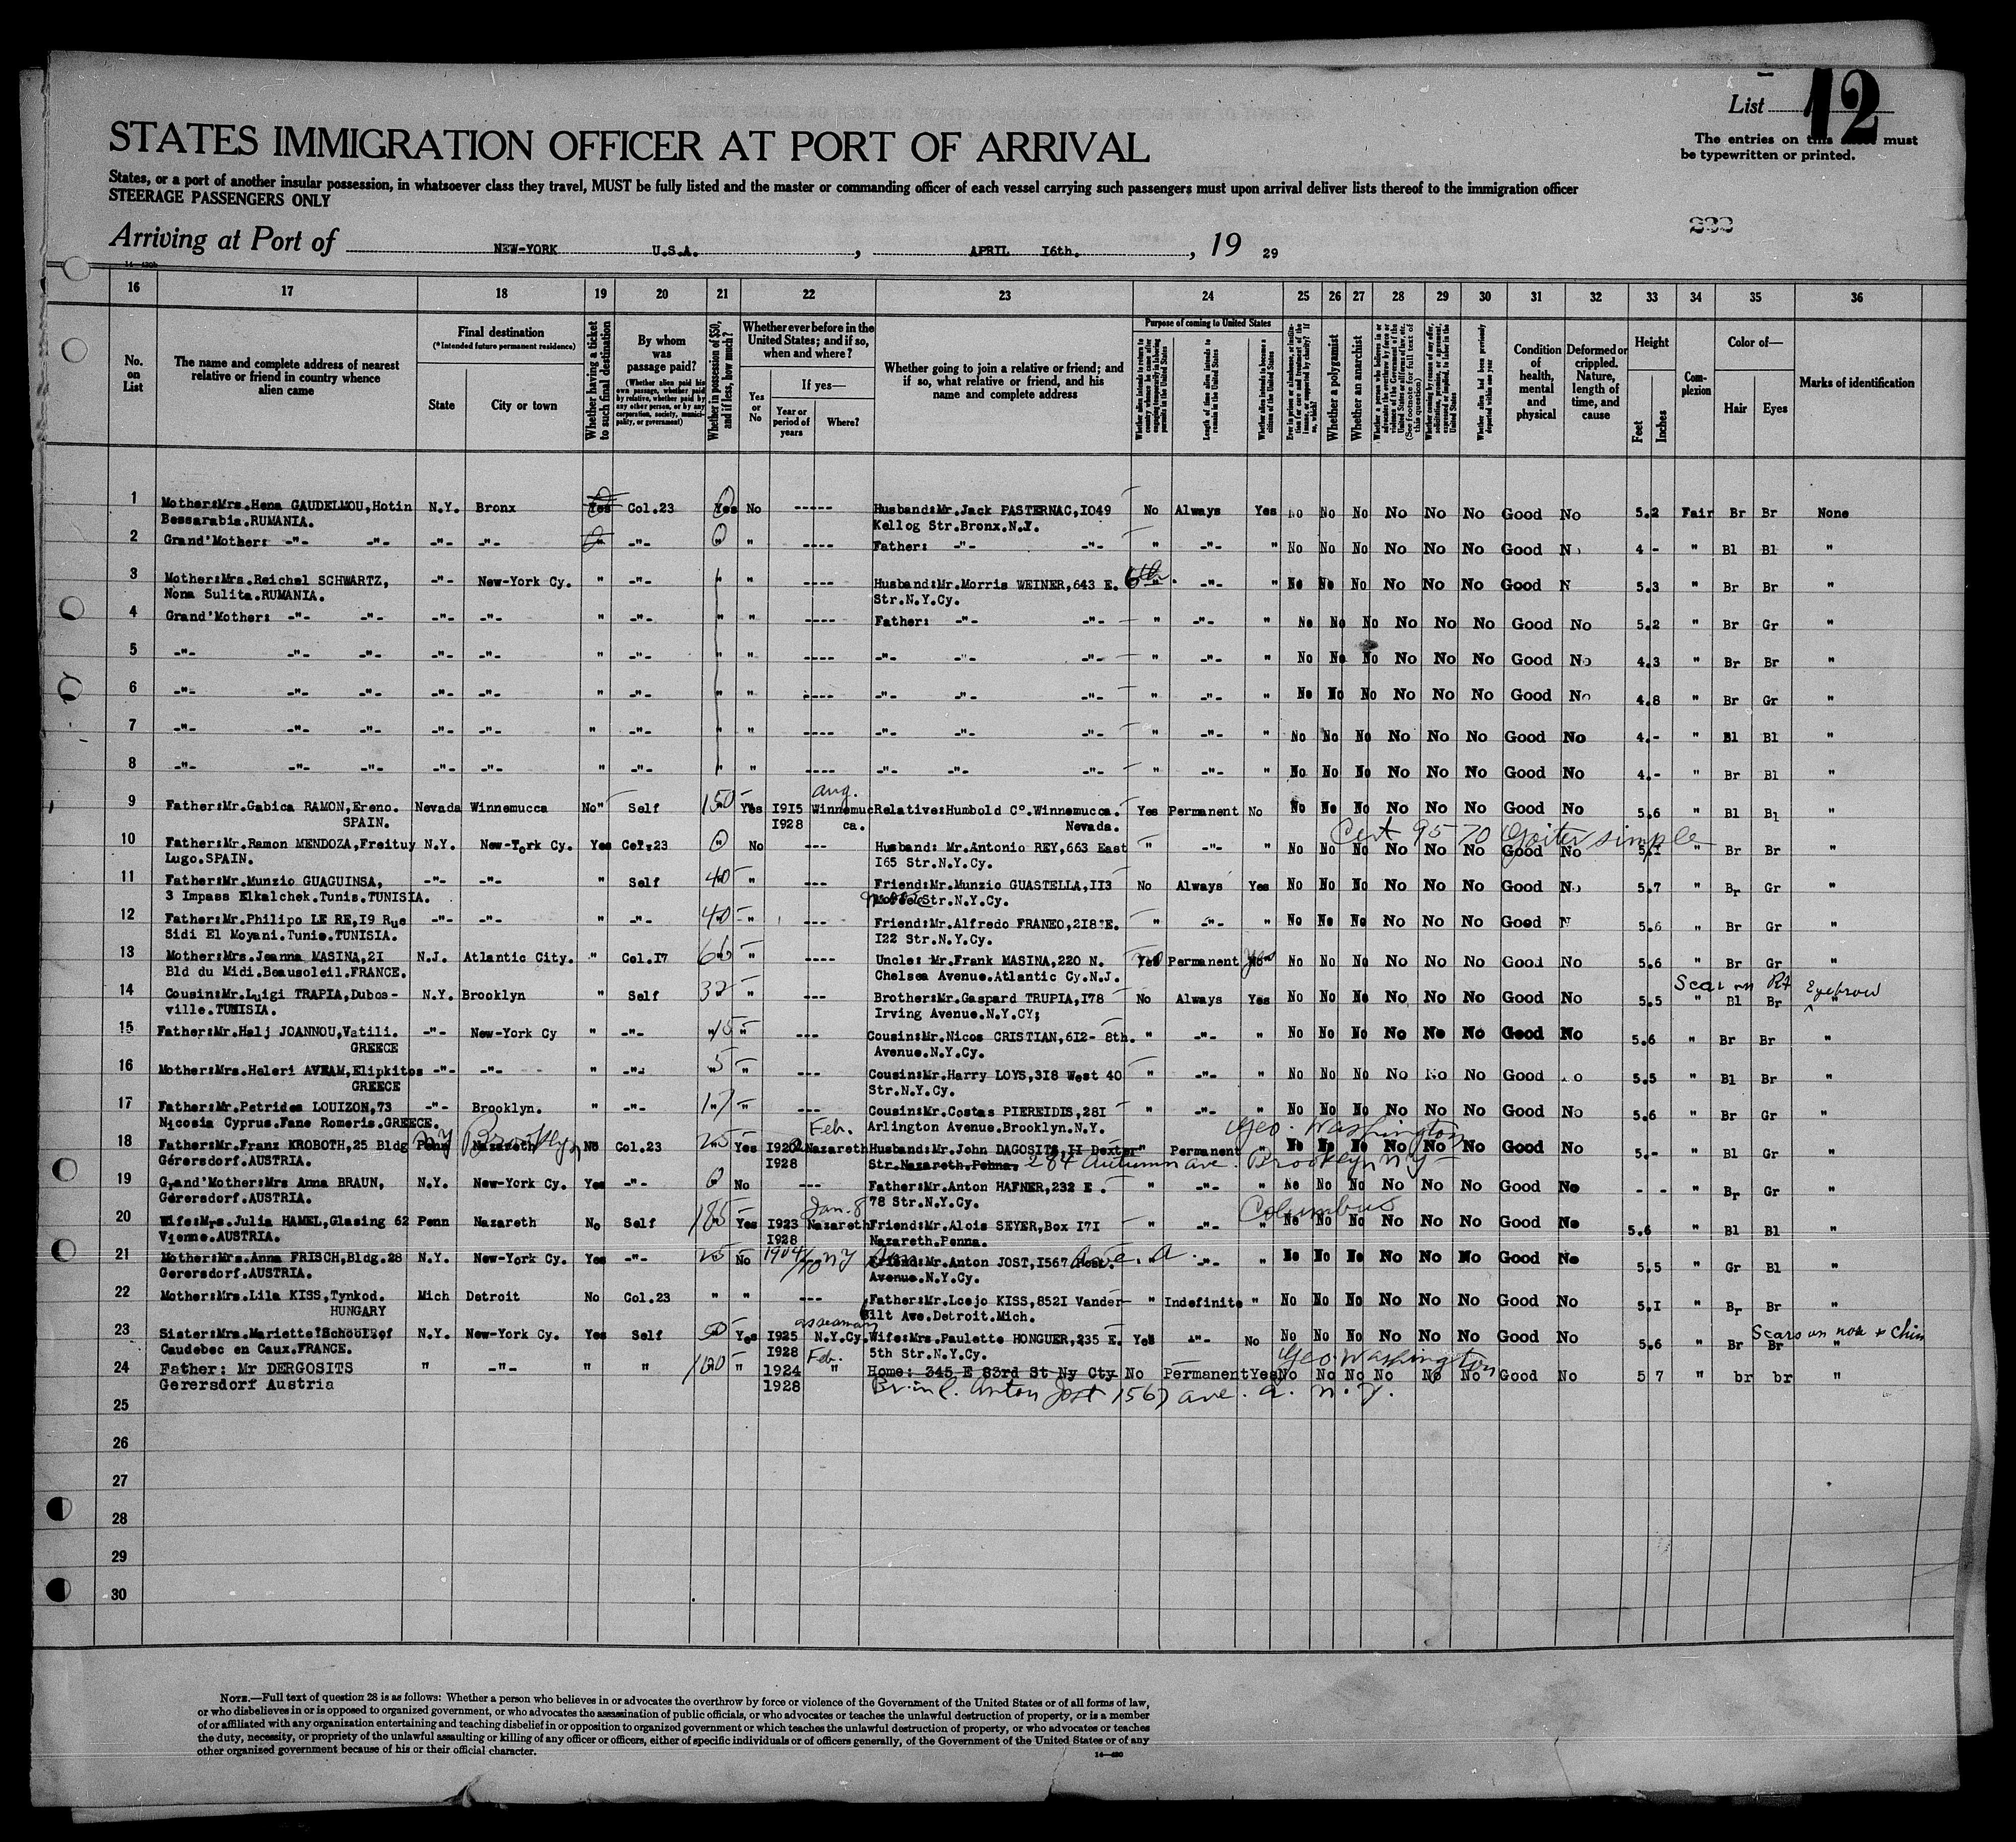 List 12
The entries on this must
be typewritten or printed.
STATES IMMIGRATION OFFICER AT PORT OF ARRIVAL
States, or a port of another insular possession, in whatsoever class they travel, MUST be fully listed and the master or commanding officer of each vessel carrying such passengers must upon arrival deliver lists thereof to the immigration officer
STEERAGE PASSENGERS ONLY
Arriving at Port of NEW-YORK U.S.A. , APRIL I6th. , 19 29
16 17 18 19 20 21 22 23 24 25 26 27 28 29 30 31 32 33 34 35 36
No. on List
The name and complete address of nearest relative or friend in country whence alien came
Final destination
(*Intended future permanent residence)
State
City or town
Whether having a ticket to such final destination
By whom was passage paid?
(Whether alien paid his own passage, whether paid by relative, whether paid by any other person, or by any corporation, society, municipality, or government)
Whether in possession of $50, and if less, how much?
Whether ever before in the United States; and if so, when and where?
Yes or No
If yes—
Year or period of years
Where?
Whether going to join a relative or friend; and if so, what relative or friend, and his name and complete address
Purpose of coming to United States
Length of time alien intends to remain in the United States
Whether alien intends to become a citizen of the United States
Whether a polygamist
Whether an anarchist
Whether alien had been previously deported within one year
Condition of health, mental and physical
Deformed or crippled. Nature, length of time, and cause
Height
Feet
Inches
Complexion
Color of—
Hair
Eyes
Marks of identification
1 Mother:Mrs.Hena GAUDELMOU,Hotin N.Y. Bronx Yes Col.23 Yes No ----- Husband:Mr.Jack PASTERNAC,I049 No Always Yes No No No No No No Good No 5.2 Fair Br Br None
Bessarabia.RUMANIA. Kellog Str.Bronx.N.Y.
2 Grand'Mother: -"- -"- -"- -"- " -"- 0 " ---- Father: -"- -"- " -"- " No No No No No No Good No 4 - " Bl Bl "
3 Mother:Mrs.Reichel SCHWARTZ, -"- New-York Cy. " -"- " " ---- Husband:Mr.Morris WEINER,643 E. 6th. -"- " No No No No No No Good N 5.3 " Br Br "
Nona Sulita.RUMANIA. Str.N.Y.Cy.
4 Grand'Mother: -"- -"- -"- -"- " -"- " " ---- Father: -"- -"- " -"- " No No No No No No Good No 5.2 " Br Gr "
5 -"- -"- -"- -"- -"- " -"- " " ---- -"- -"- -"- " -"- " No No No No No No Good No 4.3 " Br Br "
6 -"- -"- -"- -"- -"- " -"- " " ---- -"- -"- -"- " -"- " No No No No No No Good No 4.8 " Br Gr "
7 -"- -"- -"- -"- -"- " -"- " " ---- -"- -"- -"- " -"- " No No No No No No Good No 4.- " Bl Bl "
8 -"- -"- -"- -"- -"- " -"- " " ---- -"- -"- -"- " -"- " No No No No No No Good No 4.- " Br Bl "
Aug.
9 Father:Mr.Gabica RAMON,Ereno. Nevada Winnemucca No" Self 150 Yes I9I5 Winnemuc Relative:Humbold C°.Winnemucca. Yes Permanent No No No No No No No Good No 5.6 " Bl Bl "
SPAIN. I928 ca. Nevada.
Cert 9570 Goiter simple
10 Father:Mr.Ramon MENDOZA,Freituy N.Y. New-York Cy. Yes Col.23 0 No --- Husband: Mr.Antonio REY,663 East " -"- " No No No No No No Good No 5.I " Br Br "
Lugo.SPAIN. I65 Str.N.Y.Cy.
11 Father:Mr.Munzio GUAGUINSA, -"- -"- " Self 40 " --- Friend:Mr.Munzio GUASTELLA,II3 No Always Yes No No No No No No Good No 5.7 " Br Gr "
3 Impass Elkalchek.Tunis.TUNISIA. Str.N.Y.Cy.
12 Father:Mr.Philipo LE RE,I9 Rue -"- -"- " -"- 40 " --- Friend:Mr.Alfredo FRANEO,2I8 E. " -"- " No No No No No No Good N 5.6 " Br Gr "
Sidi El Moyani.Tunis.TUNISIA. I22 Str.N.Y.Cy.
13 Mother:Mrs.Jeanna MASINA,2I N.J. Atlantic City. " Col.I7 66 " --- Uncle: Mr.Frank MASINA,220 N. Yes Permanent Yes No No No No No No Good No 5.6 " Br Gr "
Bld du Midi.Beausoleil.FRANCE. Chelsea Avenue.Atlantic Cy.N.J.
Scar on Rt Eyebrow
14 Cousin:Mr.Luigi TRAPIA,Dubos- N.Y. Brooklyn " Self 32 " --- Brother:Mr.Gaspard TRUPIA,I78 No Always Yes No No No No No No Good No 5.5 " Bl Br "
ville.TUNISIA. Irving Avenue.N.Y.CY;
15 Father:Mr.Halj JOANNOU,Vatili. -"- New-York Cy " -"- 15 " --- Cousin:Mr.Nicos CRISTIAN,6I2- 8th. " -"- " No No No No No No Good No 5.6 " Br Br "
GREECE Avenue.N.Y.Cy.
16 Mother:Mrs.Heleri AVRAM,Elipkitos -"- -"- " -"- 5 " --- Cousin:Mr.Harry LOYS,3I8 West 40 " -"- " No No No No No No Good No 5.5 " Bl Br "
GREECE Str.N.Y.Cy.
17 Father:Mr.Petrides LOUIZON,73 -"- Brooklyn. " -"- 17 " --- Cousin:Mr.Costas PIEREIDIS,28I " -"- " No No No No No No Good No 5.6 " Br Gr "
Nicosia Cyprus.Fane Romeris.GREECE. Arlington Avenue.Brooklyn.N.Y.
Feb. Geo. Washington
18 Father:Mr.Franz KROBOTH,25 Bldg Penn NY Nazareth Brooklyn No Col.23 25 Yes I920 Nazareth Husband:Mr.John DAGOSITS,II Dexter " Permanent " No No No No No No Good No 5.- " Bl Gr "
Gérersdorf.AUSTRIA. I928 Str.Nazareth.Penna. 284 Autumn ave. Brooklyn NY
19 Grand'Mother:Mrs Anna BRAUN, N.Y. New-York Cy. Yes -"- 0 No --- Father:Mr.Anton HAFNER,232 E. " -"- " No No No No No No Good No - - " Br Gr "
Gérersdorf.AUSTRIA. 78 Str.N.Y.Cy.
Jan. 8 Columbus
20 Wife:Mrs.Julia HAMEL,Glasing 62 Penn Nazareth No Self 185 Yes I923 Nazareth Friend:Mr.Alois SEYER,Box I7I " -"- " No No No No No No Good No 5.6 " Bl Bl "
Vienne.AUSTRIA. I928 Nazareth.Penna.
21 Mother:Mrs.Anna FRISCH,Bldg.28 N.Y. New-York Cy. Yes -"- 25 No 1904/10 NY Friend:Mr.Anton JOST,I567 Ave. A. " -"- " No No No No No No Good No 5.5 " Gr Bl "
Gerersdorf.AUSTRIA. Avenue.N.Y.Cy.
22 Mother:Mrs.Lila KISS,Tynkod. Mich Detroit No Col.23 " " --- Father:Mr.Lcejo KISS,852I Vander- " Indefinite " No No No No No No Good No 5.I " Br Br "
HUNGARY bilt Ave.Detroit.Mich.
as seaman Scars on nose & Chin
23 Sister:Mrs.Mariette N.Y. New-York Cy. Yes Self 50 Yes I925 N.Y.Cy. Wife:Mrs.Paulette HONGUER,235 E. Yes -"- No No No No No No No Good No 5.6 " Br Br "
Caudebec en Caux.FRANCE. I928 5th Str.N.Y.Cy.
Feb. Geo. Washington
24 Father: Mr DERGOSITS " -"- " " 100 " 1924 " Home: 345 E 83rd St Ny Cty No Permanent Yes No No No No No No Good No 5 7 " br br "
Gerersdorf Austria 1928 Br.in l. Anton Jost 1567 ave. A. N.Y.
25
26
27
28
29
30
NOTE.—Full text of question 28 is as follows: Whether a person who believes in or advocates the overthrow by force or violence of the Government of the United States or of all forms of law,
or who disbelieves in or is opposed to organized government, or who advocates the assassination of public officials, or who advocates or teaches the unlawful destruction of property, or is a member
of or affiliated with any organization entertaining and teaching disbelief in or opposition to organized government or which teaches the unlawful destruction of property, or who advocates or teaches
the duty, necessity, or propriety of the unlawful assaulting or killing of any officer or officers, either of specific individuals or of officers generally, of the Government of the United States or of any
other organized government because of his or their official character.
14—430